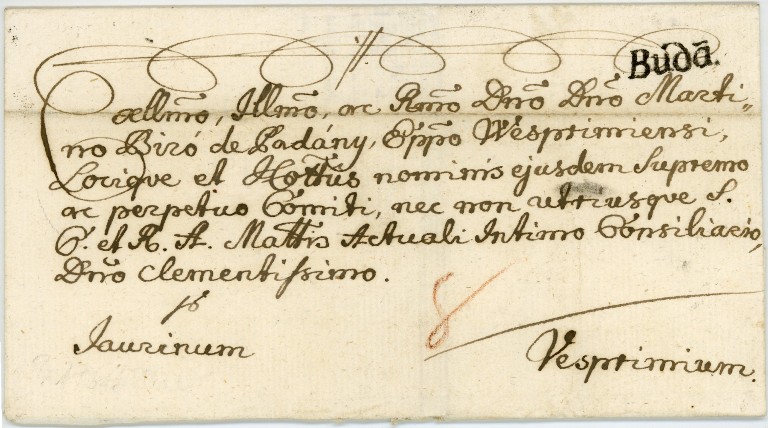 Budā.
Excellmo, Illmo, ac Rmo Dno Dno Marti=
no Biró de Padány, Eppo Wesprimiensi,
Locique et Cottus nominis ejusdem Supremo
ac perpetuo Comiti, nec non utriusque S.
C. et R. A. Mattis Actuali Intimo Consiliario,
Dno Clementissimo.
Jaurinum
8
Vesprimium.